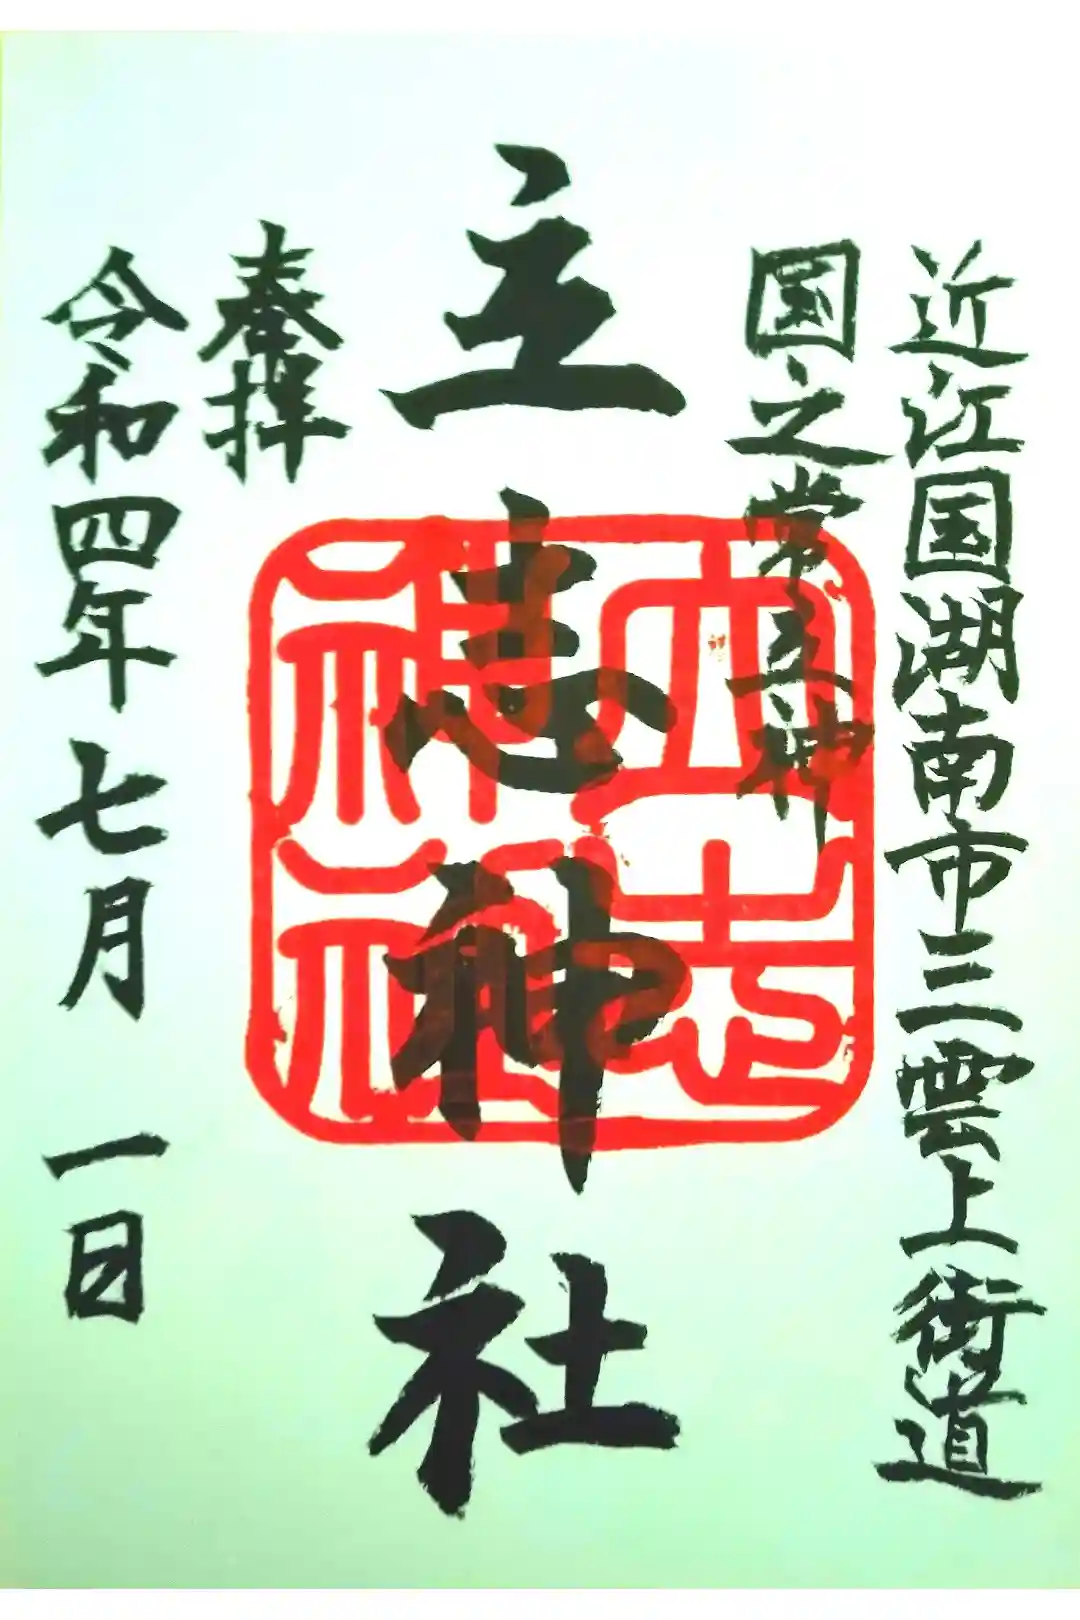 近江国湖南市三雲上街道
国之常立神
立志神社
奉拝
令和四年七月一日
立志
神社